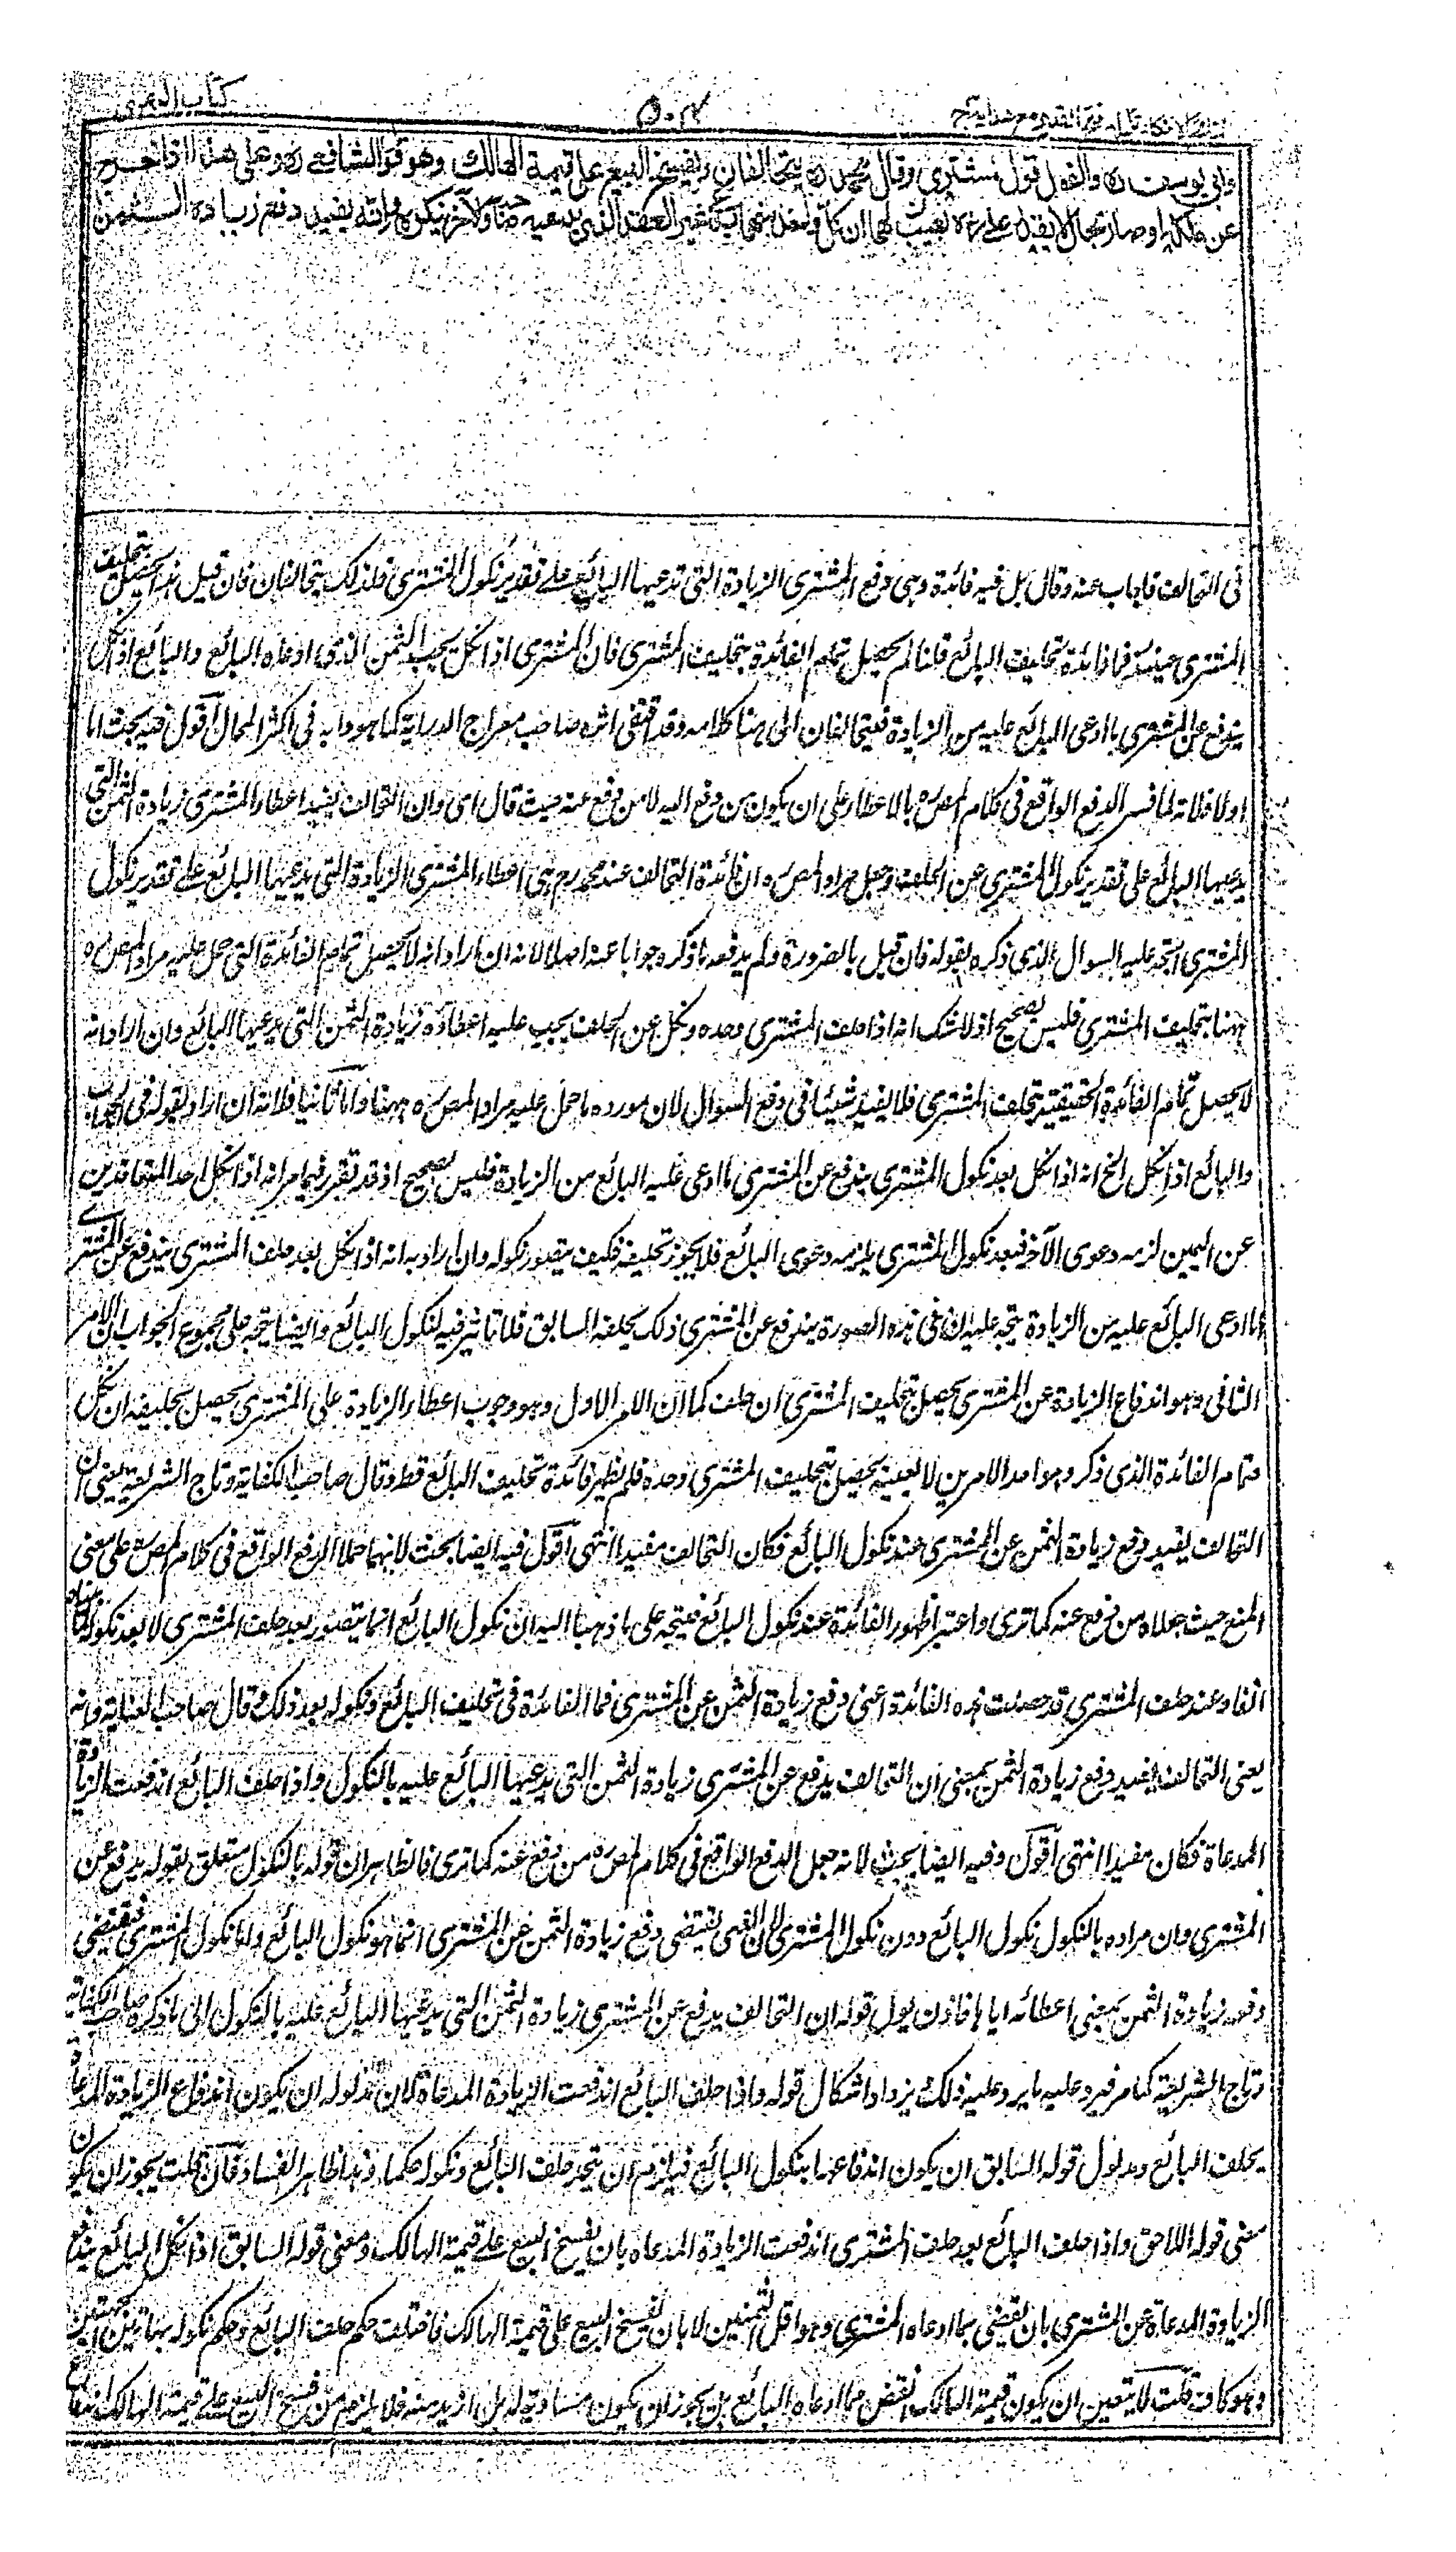 نتائج الافكار تكملة فتح القدير مع هداية ج
٥٠٤
كتاب الدعوى
وابي يوسف ره والقول قول المشتري وقال محمد ره يتحالفان ويفسخ البيع على قيمة الهالك وهو قول الشافعي ره وعلى هذا اذا خرج
عن ملكه او صار بحال لا يقدر على رده بعيب لهما ان كل واحد منهما يدعي غير العقد الذي يدعيه صاحبه والآخر ينكره وانه يفيد دفع زيادة الثمن
في التحالف فاجاب عنه وقال بل فيه فائدة وهي دفع المشتري الزيادة التي تدعيها البائع على تقدير نكول المشتري فلذلك يتحالفان فان قيل هذا يحصل بتحليف
المشتري حينئذ فما فائدة تحليف البائع قلنا لم يحصل تمام الفائدة بتحليف المشتري فان المشتري اذا نكل يجب الثمن الذي ادعاه البائع والبائع اذا نكل
يندفع عن المشتري ما ادعى البائع عليه من الزيادة فيتحالفان الى هنا كلامه وقد اقتفى اثره صاحب معراج الدراية كما هو دابه في اكثر المحال اقول فيه بحث اما
اولا فلانه لما فسر الدفع الواقع في كلام المصره بالاعطاء على ان يكون من دفع اليه لا من دفع عنه حيث قال اى وان التحالف يفيد اعطاء المشتري زيادة الثمن التي
يدعيها البائع على تقدير نكول المشتري عن الحلف وجعل مراد المصره ان فائدة التحالف عند محمد رح هي اعطاء المشتري الزيادة التي يدعيها البائع على تقدير نكول
المشتري اتجه عليه السوال الذي ذكره بقوله فان قيل بالضرورة ولم يدفعه ما ذكره جوابا عنه اصلا لانه ان اراد انه لا يحصل تمام الفائدة التي حمل عليه مراد المصره
ههنا بتحليف المشتري فليس بصحيح اذ لا شك انه اذا حلف المشتري وحده ونكل عن الحلف يجب عليه اعطاؤه زيادة الثمن التي يدعيها البائع وان اراد انه
لا يحصل تمام الفائدة الحقيقية بتحليف المشتري فلا يفيد شيئا في دفع السوال لان مورده ما حمل عليه مراد المصره ههنا واما ثانيا فلانه ان اراد بقوله في الجواب
والبائع اذا نكل الخ انه اذا نكل بعد نكول المشتري يندفع عن المشتري ما ادعى عليه البائع من الزيادة فليس بصحيح اذ قد تقرر فيما مر انه اذا نكل احد المتعاقدين
عن اليمين لزمه دعوى الآخر فبعد نكول المشتري يلزمه دعوى البائع فلا يجوز تحليفه فكيف يتصور نكوله وان اراد به انه اذا نكل بعد حلف المشتري يندفع عن المشترے
ما ادعى البائع عليه من الزيادة يتجه عليه ان في هذه الصورة يندفع عن المشتري ذلك بحلفه السابق فلا تاثير فيه لنكول البائع وايضا يتجه على مجموع الجواب ان الامر
الثاني وهو اندفاع الزيادة عن المشتري يحصل بتحليف المشتري ان حلف كما ان الامر الاول وهو وجوب اعطاء الزيادة على المشتري يحصل بتحليفه ان نكل
فتمام الفائدة الذي ذكر وهو احد الامرين لا بعينه يحصل بتحليف المشتري وحده فلم يظهر فائدة تحليف البائع قط وقال صاحب الكفاية وتاج الشريعة يعني ان
التحالف يفيد دفع زيادة الثمن عن المشتري عند نكول البائع فكان التحالف مفيدا انتهى اقول فيه ايضا بحث لانهما حملا الدفع الواقع في كلام المصره على معنى
المنع حيث جعلاه من دفع عنه كما ترى واعتبرا ظهور الفائدة عند نكول البائع فيتجه على ما ذهبا اليه ان نكول البائع انما يتصور بعد حلف المشتري لا بعد نكوله لما بيناه
انفا وعند حلف المشتري قد حصلت هذه الفائدة اعني دفع زيادة الثمن عن المشتري فما الفائدة في تحليف البائع ونكوله بعد ذلك وقال صاحب العناية وانه
يعني التحالف يفيد دفع زيادة الثمن بمعنى ان التحالف يدفع عن المشتري زيادة الثمن التي يدعيها البائع عليه بالنكول واذا حلف البائع اندفعت الزيادة
المدعاة فكان مفيدا انتهى اقول وفيه ايضا بحث لانه جعل الدفع الواقع في كلام المصره من دفع عنه كما ترى فالظاهر ان قوله بالنكول متعلق بقوله يدفع عن
المشتري وان مراده بالنكول نكول البائع دون نكول المشتري لان الذي يقتضي دفع زيادة الثمن عن المشتري انما هو نكول البائع واما نكول المشتري فيقتضي
دفعه زيادة الثمن بمعنى اعطائه اياها فاذن يول قوله ان التحالف يدفع عن المشتري زيادة الثمن التي يدعيها البائع عليه بالنكول الى ما ذكره صاحب الكفاية
وتاج الشريعة كما مر فيرد عليه ما يرد عليه ذلك ويزداد اشكال قوله واذا حلف البائع اندفعت الزيادة المدعاة لان مدلوله ان يكون اندفاع الزيادة المدعاة
بحلف البائع ومدلول قوله السابق ان يكون اندفاعها بنكول البائع فيلزم ان يتحد حلف البائع ونكوله حكما وهذا ظاهر الفساد فان قلت يجوز ان يكون
معنى قوله اللاحق واذا حلف البائع بعد حلف المشتري اندفعت الزيادة المدعاة بان يفسخ البيع على قيمة الهالك ومعنى قوله السابق اذا نكل البائع يندفع
الزيادة المدعاة عن المشتري بان يقضي بما ادعاه المشتري وهو اقل الثمنين لا بان يفسخ البيع على قيمة الهالك فاختلف حكم حلف البائع وحكم نكوله بهاتين الجهتين
وهو كاف قلت لا يتعين ان يكون قيمة الهالك انقص مما ادعاه البائع بل يجوز ان يكون مساوية له بل ازيد منه فلا يلزم من فسخ البيع على قيمة الهالك اندفاع